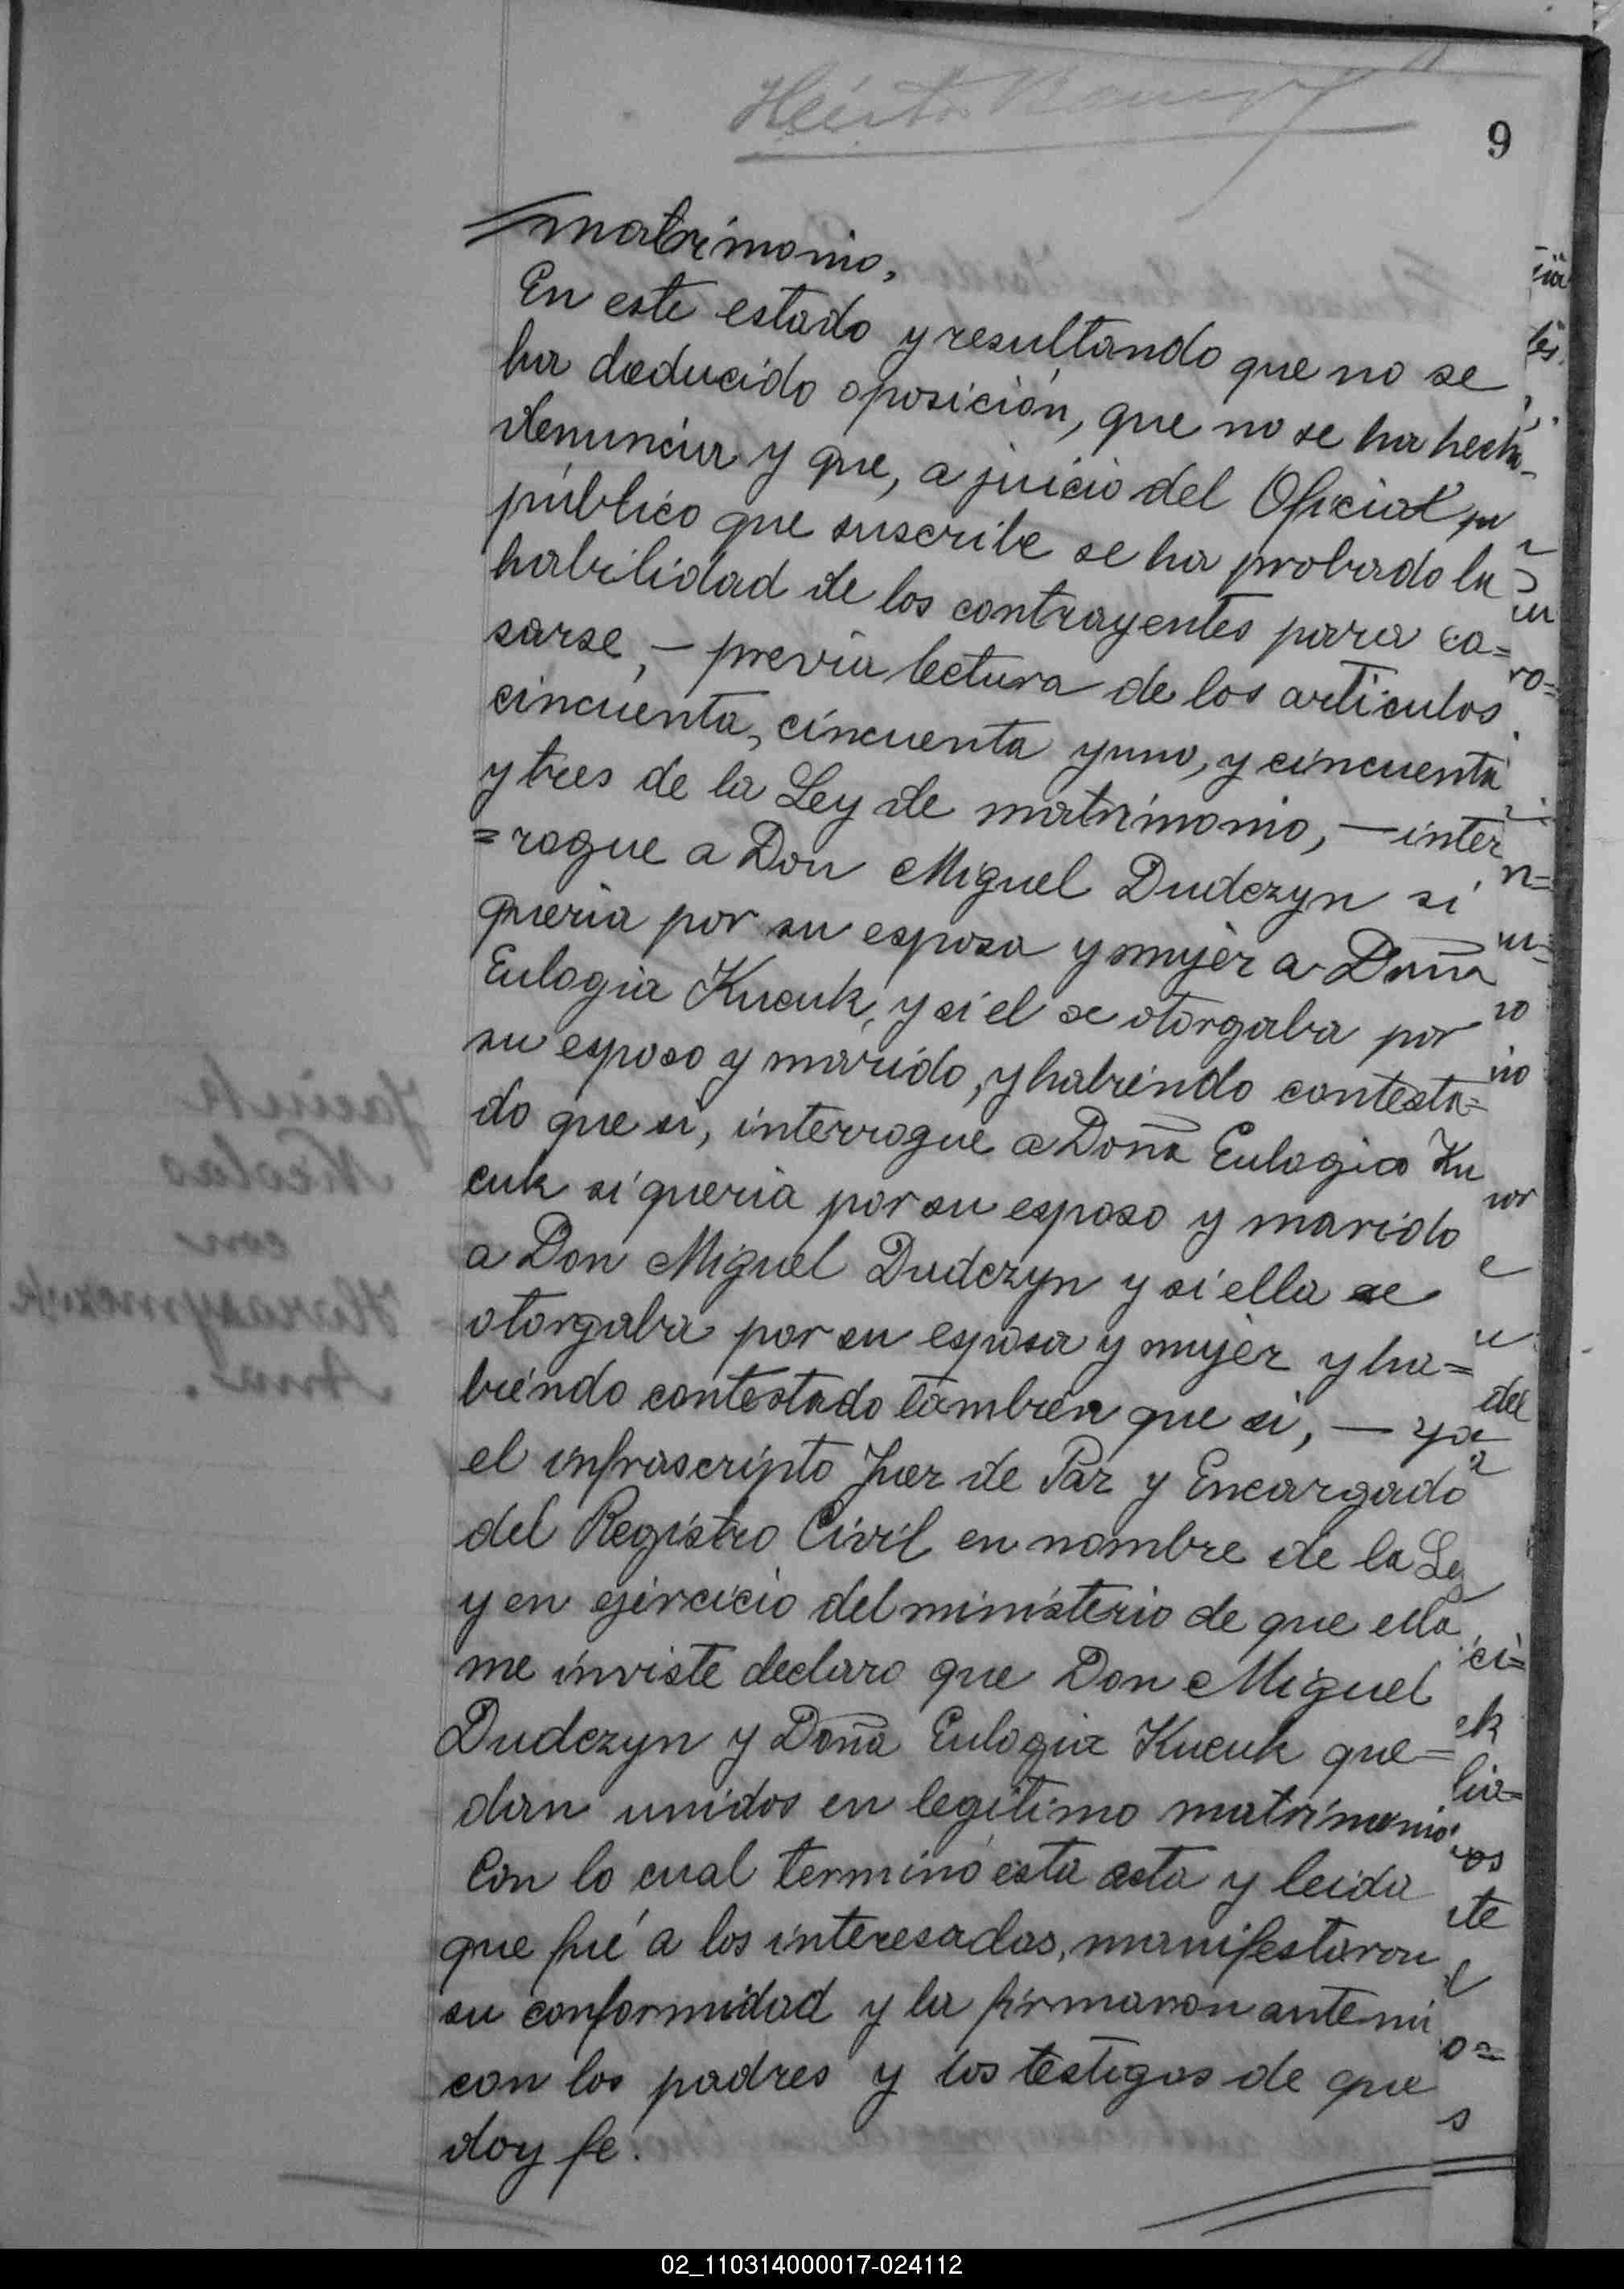 Héctor
9
matrimonio,
En este estado y resultando que no se
ha deducido oposición, que no se ha hecho
denuncia y que, a juicio del Oficial pu
público que suscribe se ha probado la
habilidad de los contrayentes para ca=
sarse, — previa lectura de los articulos
cincuenta, cincuenta y uno, y cincuenta
y tres de la Ley de matrimonio, — inter
=rogue a Don Miguel Dudczyn si
queria por su esposa y mujer a Doña
Eulogia Kucuk, y si el se otorgaba por
su esposo y marido, y habiendo contesta=
do que si, interrogue a Doña Eulogia Ku
cuk si queria por su esposo y marido
a Don Miguel Dudczyn y si ella se
otorgaba por su esposa y mujer y ha=
biendo contestado tambien que si, — yo
el infrascripto Juez de Paz y Encargado
del Registro Civil en nombre de la Ley
y en ejercicio del ministerio de que ella
me inviste declaro que Don Miguel
Dudczyn y Doña Eulogia Kucuk que=
dan unidos en legitimo matrimonio.
Con lo cual terminó esta acta y leida
que fué a los interesados, manifestaron
su conformidad y la firmaron ante mi
con los padres y los testigos de que
doy fe.
02_110314000017-024112